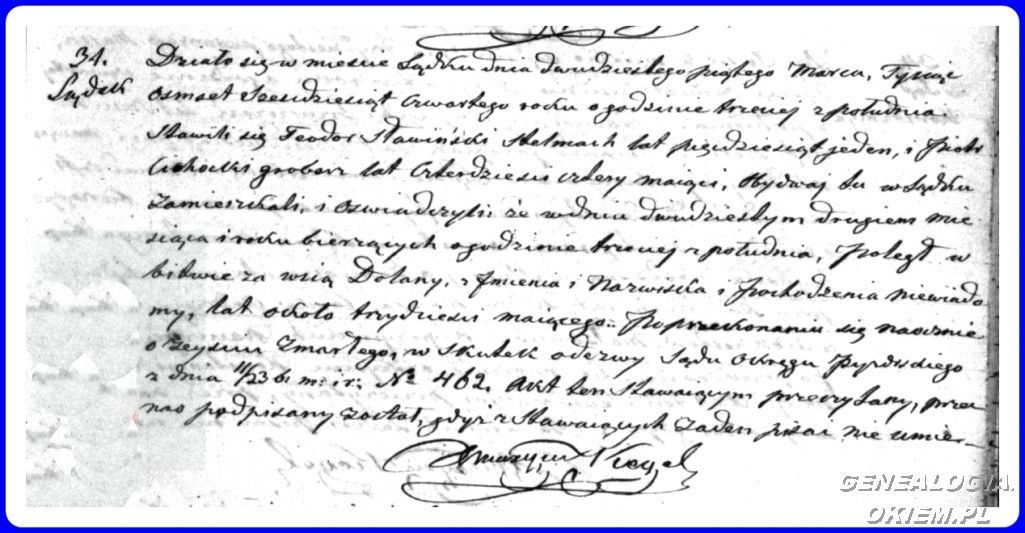 31.
Lądek
Działo się w mieście Lądku dnia dwudziestego piątego Marca, Tysiąc
osmset Szesdziesiąt czwartego roku o godzinie trzeciej z południa
Stawili się Teodor Sławiński Stelmach lat pięćdziesiąt jeden, i Piotr
Cichocki grobarz lat czterdzieści cztery maiący, Obydwaj tu w Lądku
zamieszkali, i oswiadczyli: że w dniu dwudziestym drugiem mie
siąca i roku bierzących o godzinie trzeciej z południa, Poległ w
bitwie za wsią Dolany, z Jmienia i Nazwiska i Pochodzenia niewiado
my, lat około trzydzieści maiącego. Po przekonaniu się naocznie
o Zeysciu Zmarłego, w skutek odezwy Sądu Okręgu Pyzdrskiego
z dnia 11/23 b. m: i r: № 462. Akt ten stawaiącym przeczytany, przez
nas podpisany został, gdyż z Stawaiących żaden pisać nie umie.—
GENEALOGIA.
OKIEM.PL